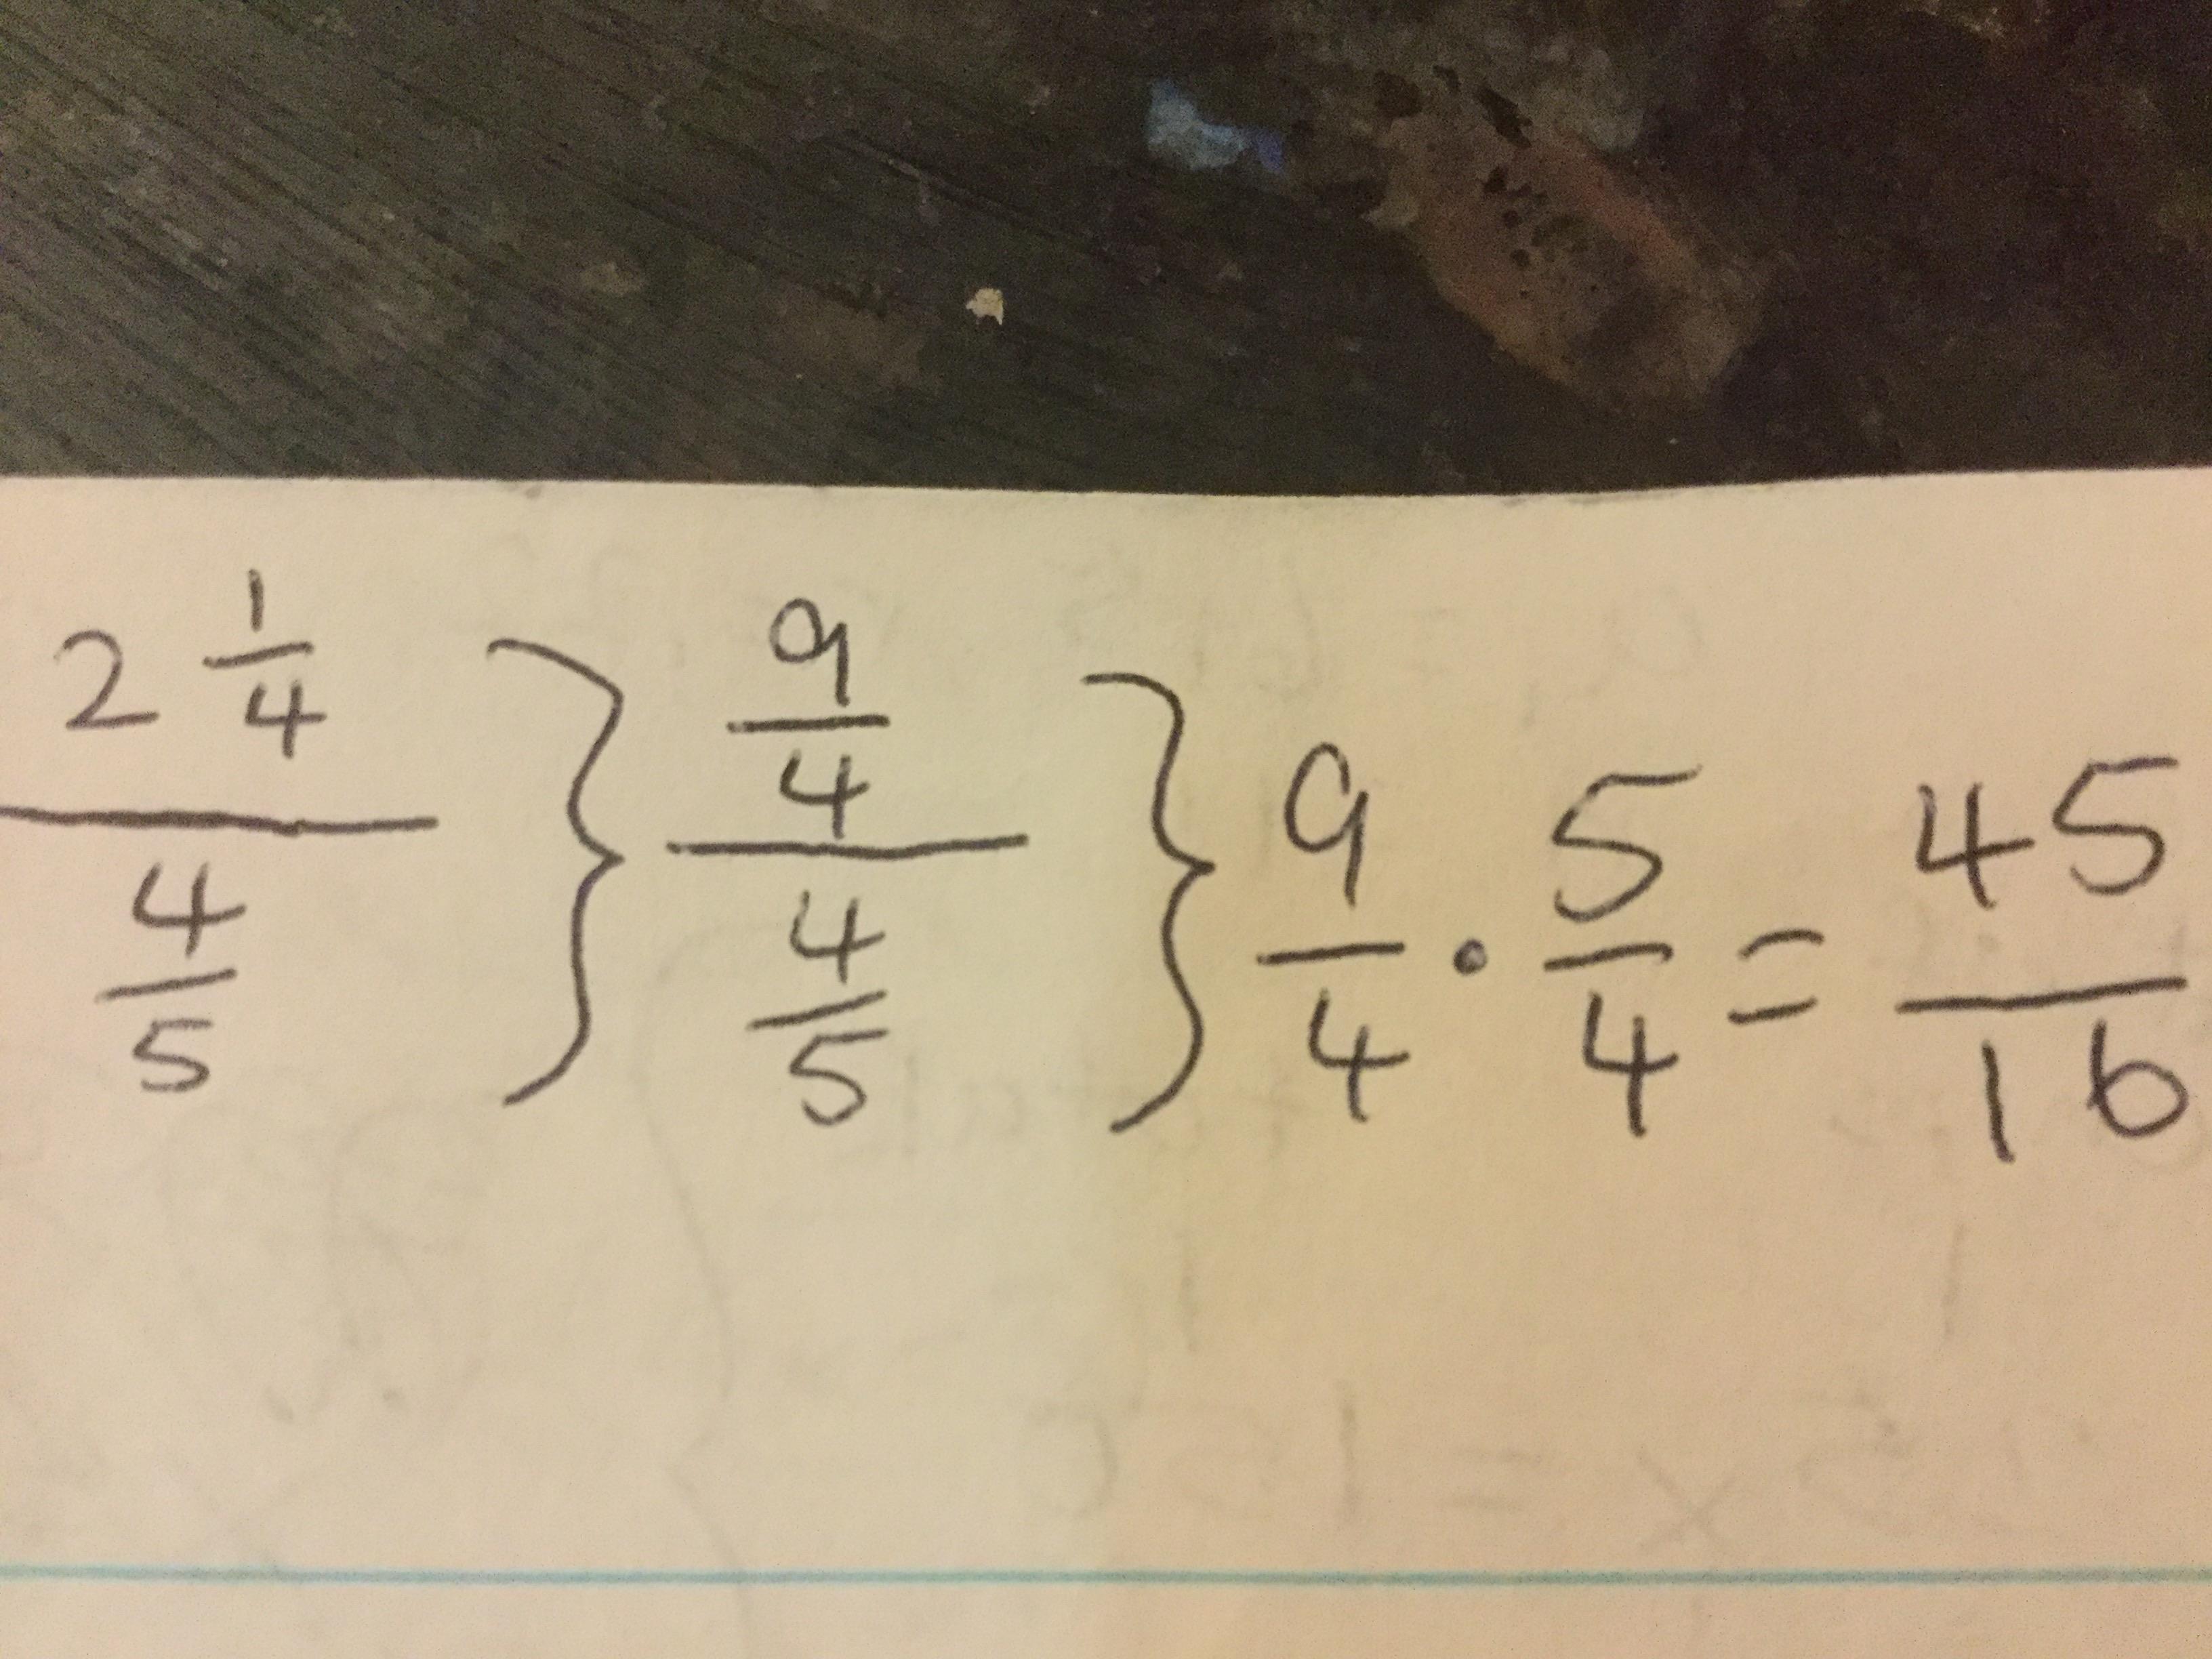 2 1/4 / 4/5 } 9/4 / 4/5 } 9/4 · 5/4 = 45/16